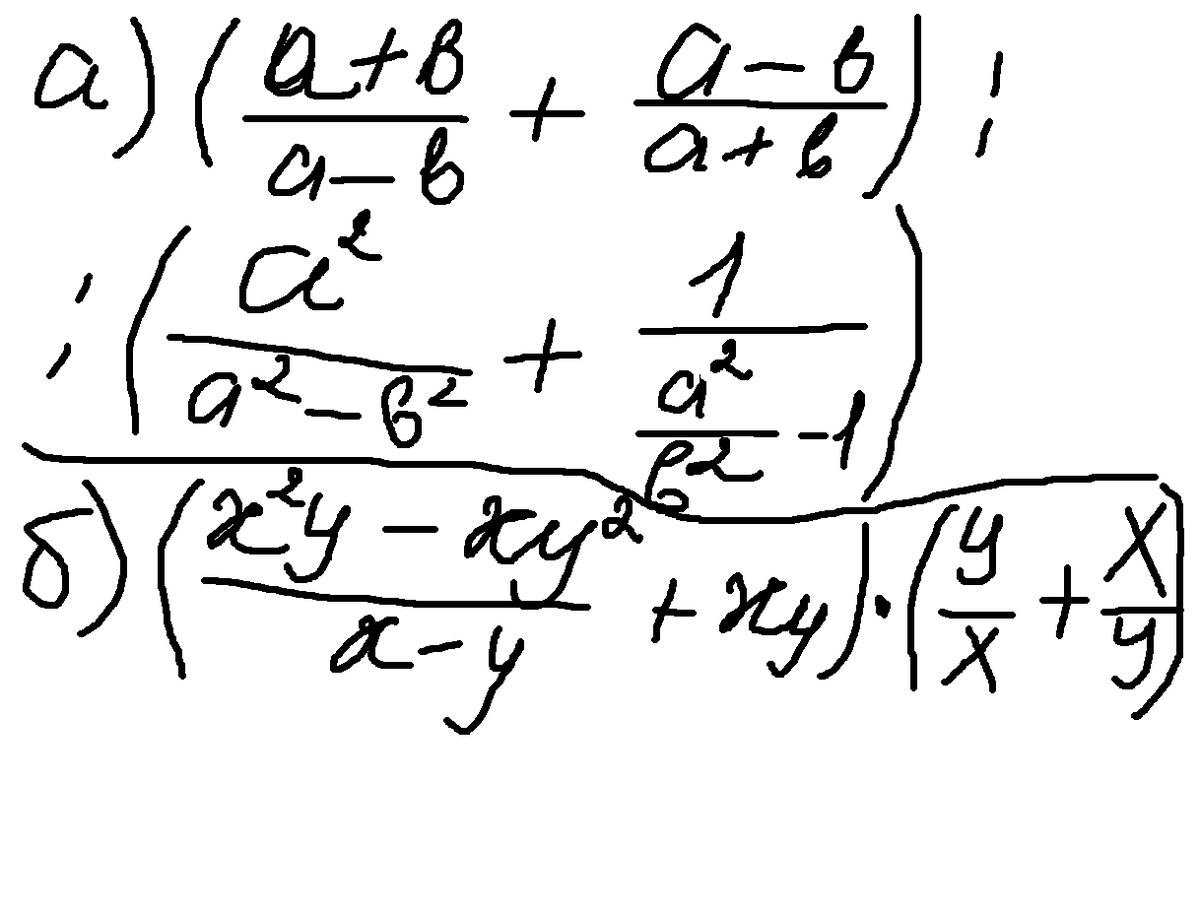 а) ((a+b)/(a-b) + (a-b)/(a+b)) :
: (a²/(a²-b²) + 1/(a²/b² - 1))
б) ((x²y - xy²)/(x-y) + xy) · (y/x + x/y)